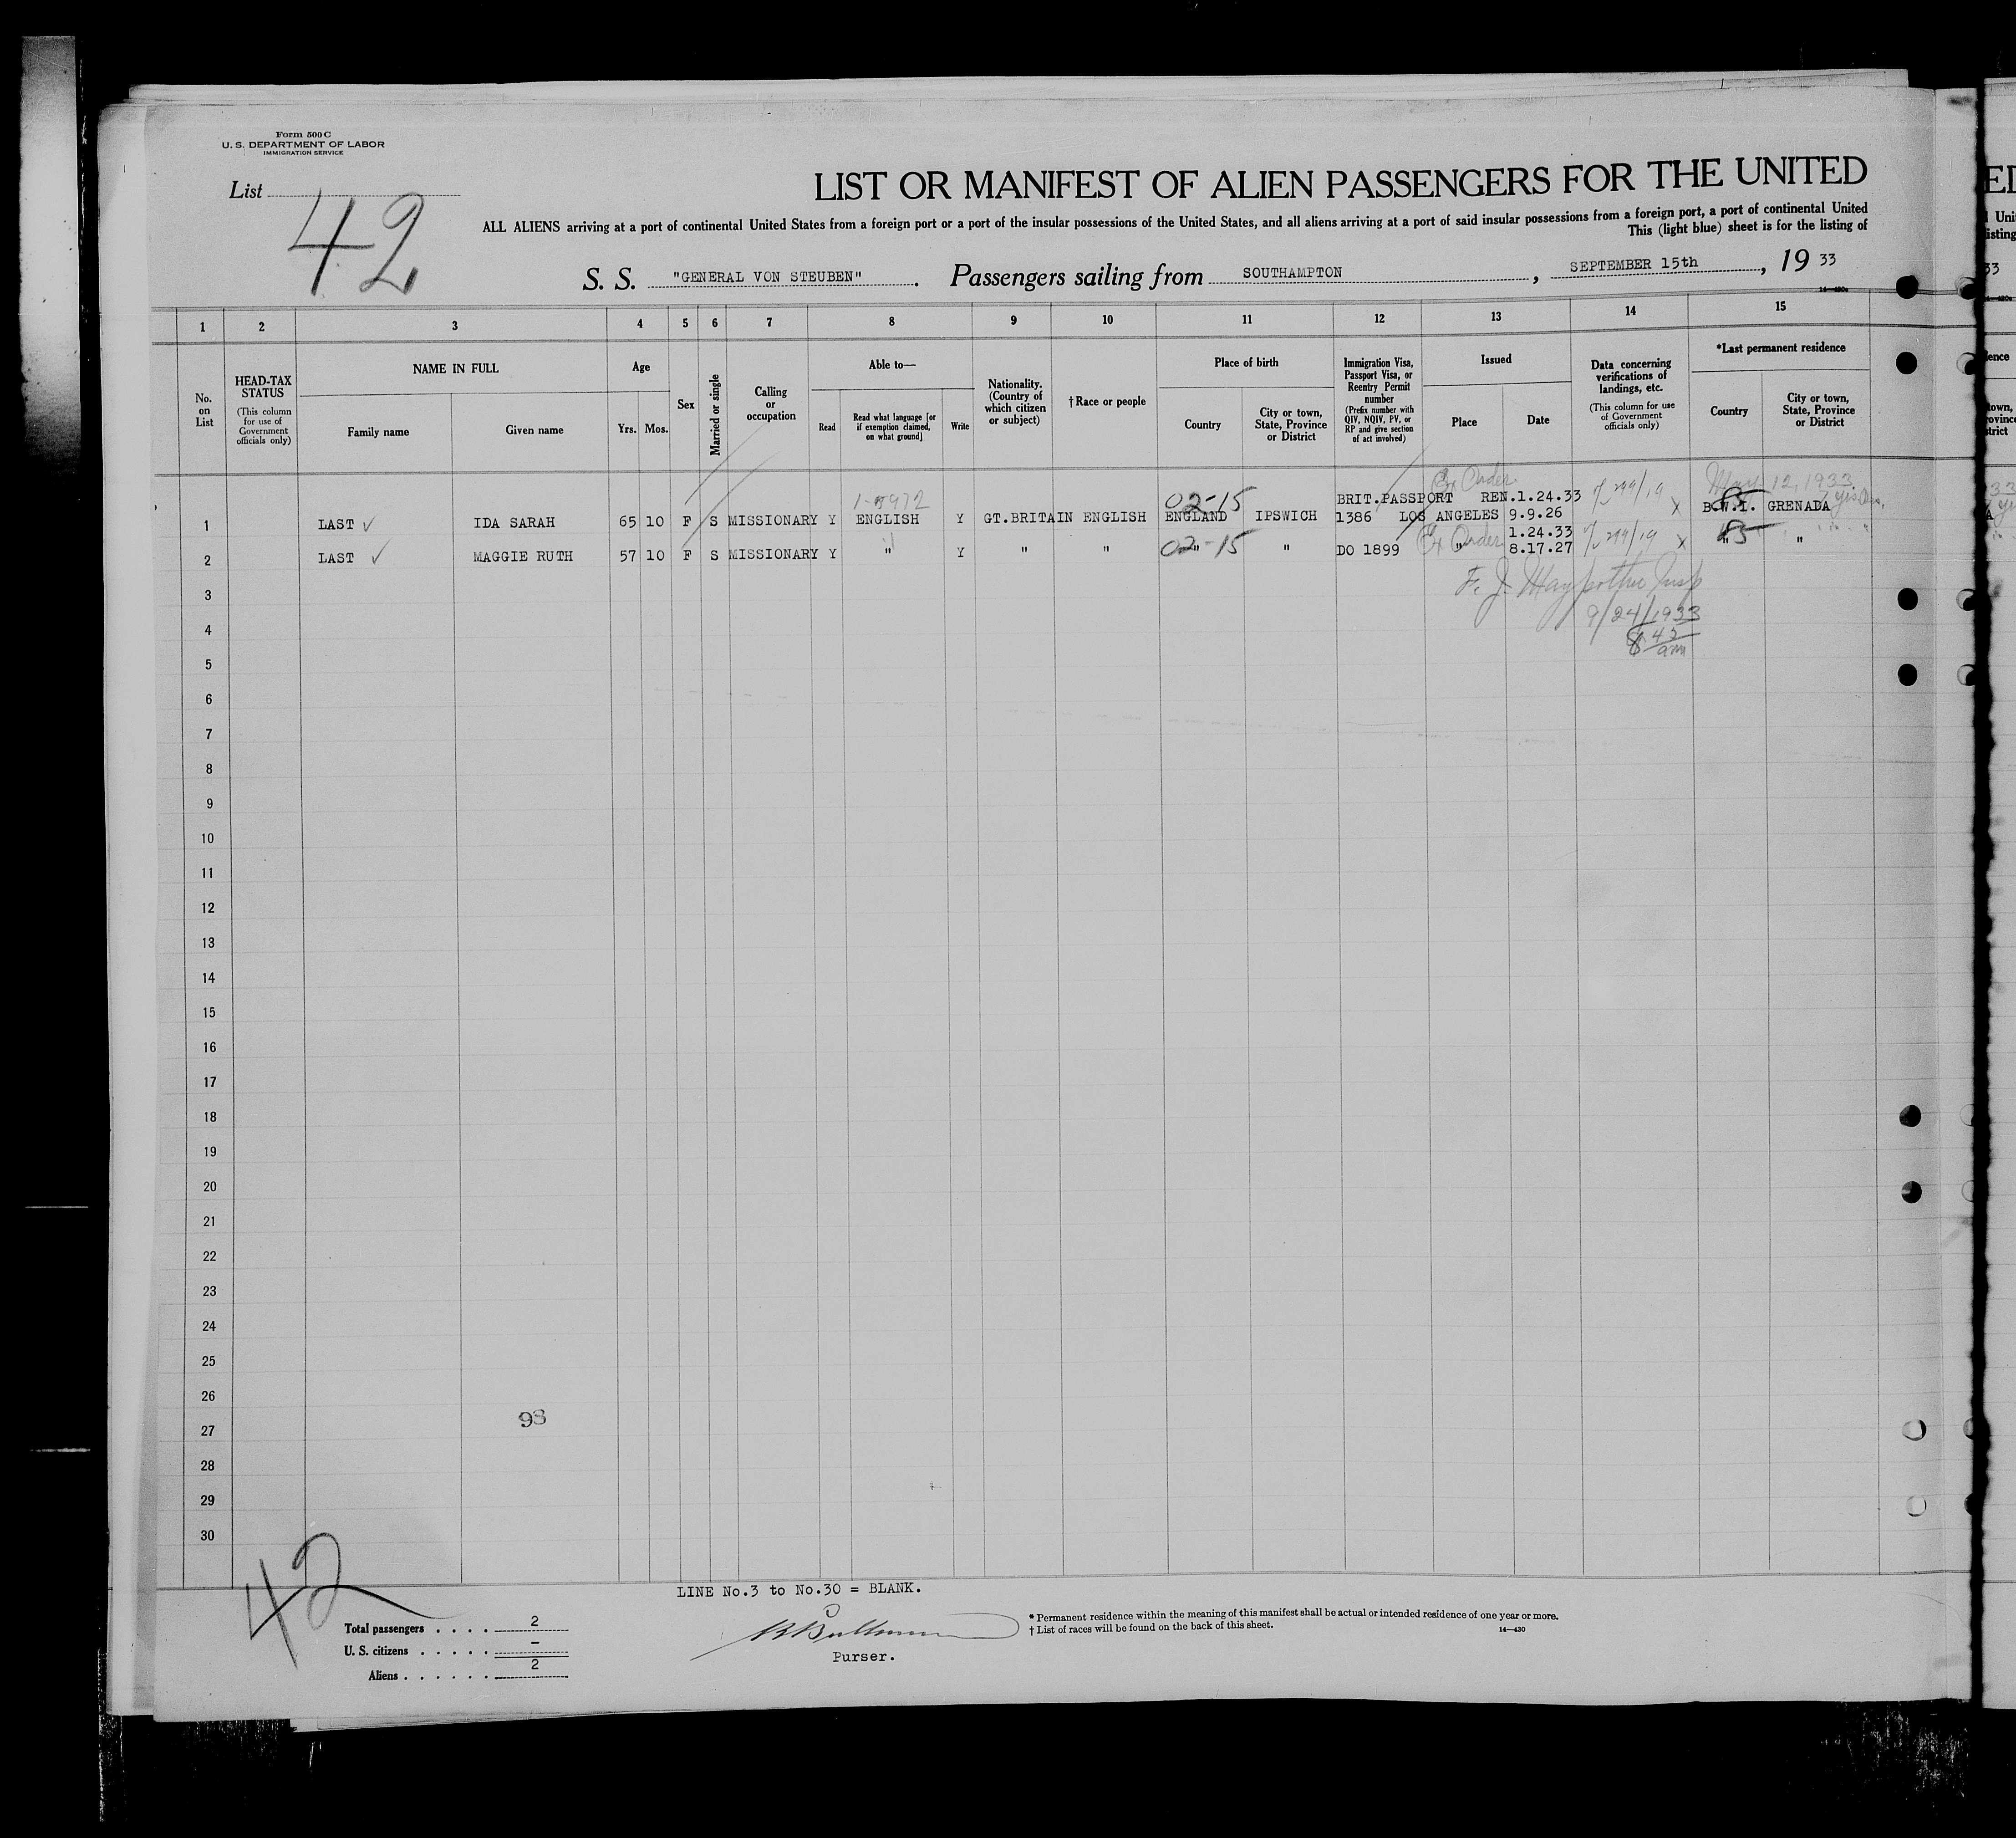 Form 500 C
U. S. DEPARTMENT OF LABOR
IMMIGRATION SERVICE
List
42
LIST OR MANIFEST OF ALIEN PASSENGERS FOR THE UNITED
ALL ALIENS arriving at a port of continental United States from a foreign port or a port of the insular possessions of the United States, and all aliens arriving at a port of said insular possessions from a foreign port, a port of continental United
This (light blue) sheet is for the listing of
S. S. "GENERAL VON STEUBEN". Passengers sailing from SOUTHAMPTON, SEPTEMBER 15th, 19 33
1 2 3 4 5 6 7 8 9 10 11 12 13 14 15
No. on List
HEAD-TAX STATUS
(This column for use of Government officials only)
NAME IN FULL
Family name
Given name
Age
Yrs. Mos.
Sex
Married or single
Calling or occupation
Able to—
Read
Read what language [or if exemption claimed, on what ground]
Write
Nationality. (Country of which citizen or subject)
† Race or people
Place of birth
Country
City or town, State, Province or District
Immigration Visa, Passport Visa, or Reentry Permit number
(Prefix number with QIV, NQIV, PV, or RP and give section of act involved)
Issued
Place
Date
Data concerning verifications of landings, etc.
(This column for use of Government officials only)
*Last permanent residence
Country
City or town, State, Province or District
Ex Order May 12, 1933
02-15 BRIT.PASSPORT REN.1.24.33
1 LAST ✓ IDA SARAH 65 10 F S MISSIONARY Y ENGLISH Y GT.BRITAIN ENGLISH ENGLAND IPSWICH 1386 LOS ANGELES 9.9.26 X B.W.I. GRENADA
1.24.33
2 LAST ✓ MAGGIE RUTH 57 10 F S MISSIONARY Y " Y " " 02-15 " " DO 1899 Ex Order " 8.17.27 X " "
F. J. Insp
9/24/1933
8 43 am
3
4
5
6
7
8
9
10
11
12
13
14
15
16
17
18
19
20
21
22
23
24
25
26
27
28
29
30
93
42
LINE No.3 to No.30 = BLANK.
Total passengers 2
U. S. citizens –
Aliens 2
Purser.
* Permanent residence within the meaning of this manifest shall be actual or intended residence of one year or more.
† List of races will be found on the back of this sheet.
14—430